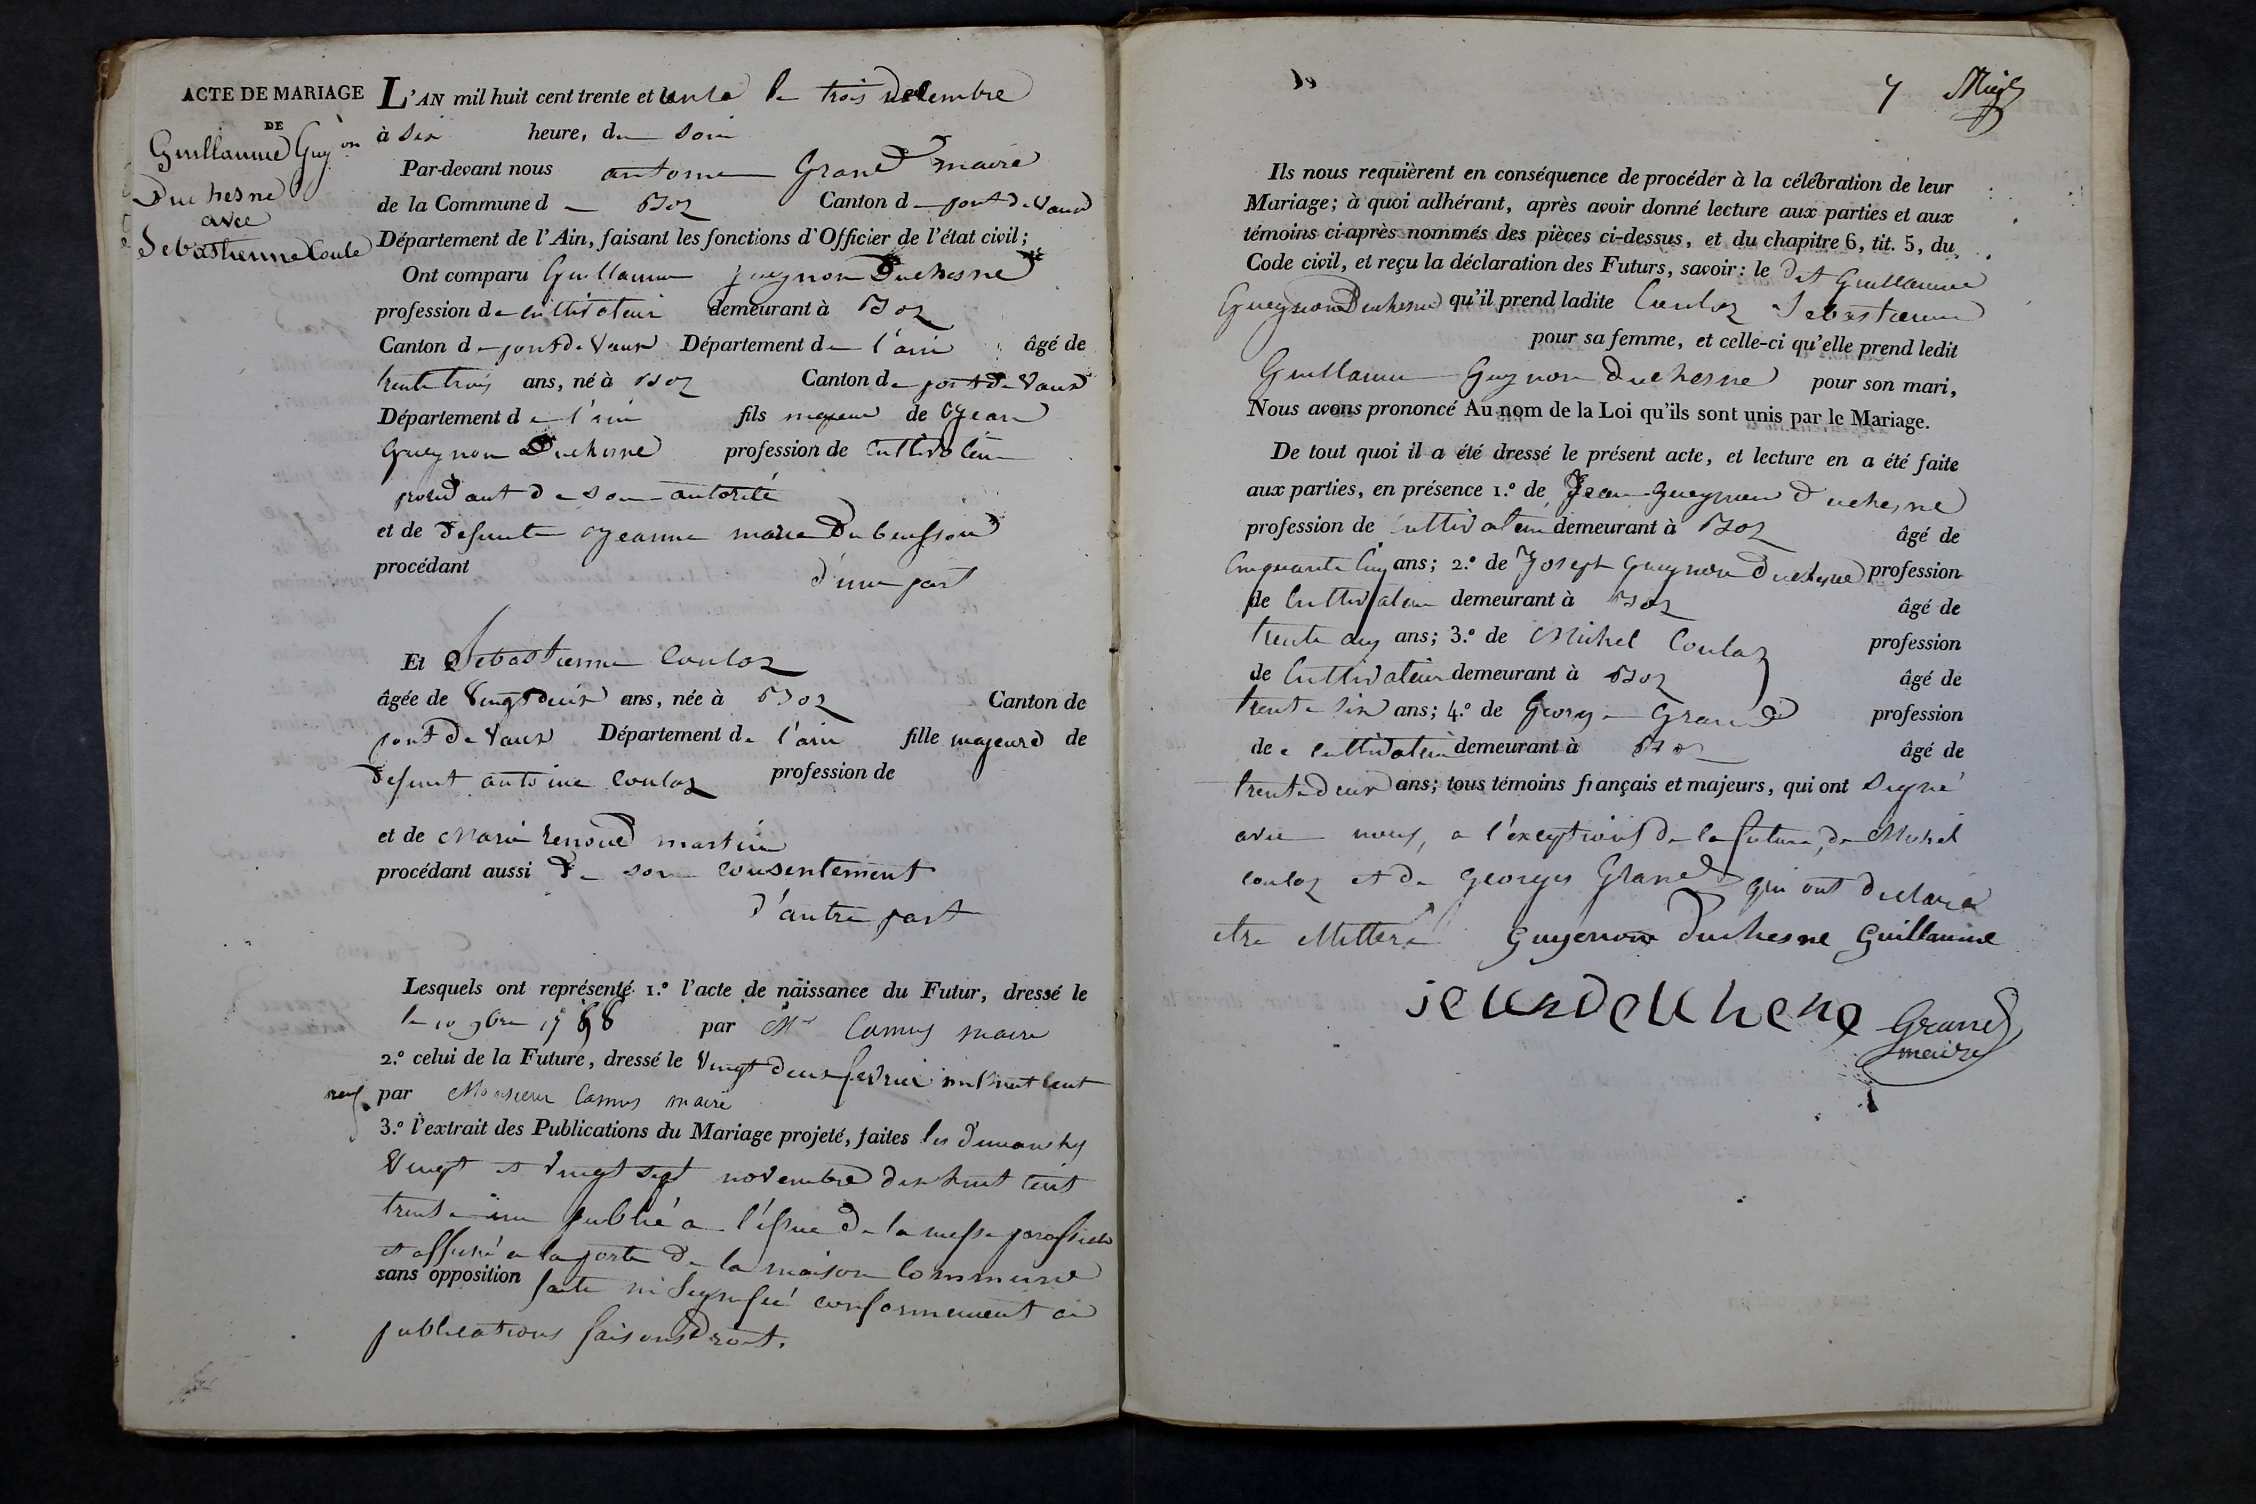 ACTE DE MARIAGE
DE
Guillaume Guy on
Duchesne
avec
Sebastienne Coule
L'AN mil huit cent trente et unte le trois decembre
à six heure, du soir
Par-devant nous antoine Grand maire
de la Commune d Boz Canton d pont de Vaux
Département de l'Ain, faisant les fonctions d'Officier de l'état civil;
Ont comparu Guillaume gueynon Duchesne
profession de cultivateur demeurant à Boz
Canton de pont de Vaux Département de l'ain âgé de
trente trois ans, né à Boz Canton de pont de Vaux
Département de l'ain fils majeur de Jean
Gueynon Duchesne profession de Cultivateur
procedant de son autorité
et de defunte Jeanne marie Dubuisson
procédant d'une part
Et Sebastienne Couloz
âgée de Vingt deux ans, née à Boz Canton de
pont de Vaux Département de l'ain fille majeure de
defunt antoine Couloz profession de
et de Marie Renoud martin
procédant aussi de son consentement
d'autre part
Lesquels ont représenté 1.º l'acte de naissance du Futur, dressé le
le 10 9bre par Mr Camus maire
2.º celui de la Future, dressé le Vingt deux fevrier mil huit Cent
neuf par Monsieur Camus maire
3.º l'extrait des Publications du Mariage projeté, faites les dimanches
Vingt et Vingt sept novembre dix huit cent
trente un publié a l'issue de la messe
et affiché a la porte de la maison Commune
sans opposition faite ni Signifié conformement
publications faisons droit.
7
Ils nous requièrent en conséquence de procéder à la célébration de leur
Mariage; à quoi adhérant, après avoir donné lecture aux parties et aux
témoins ci-après nommés des pièces ci-dessus, et du chapitre 6, tit. 5, du
Code civil, et reçu la déclaration des Futurs, savoir: le dit Guillaume
Gueynon Duchesne qu'il prend ladite Couloz Sebastienne
pour sa femme, et celle-ci qu'elle prend ledit
Guillaume Guynon Duchesne pour son mari,
Nous avons prononcé Au nom de la Loi qu'ils sont unis par le Mariage.
De tout quoi il a été dressé le présent acte, et lecture en a été faite
aux parties, en présence 1.º de Jean gueynon duchesne
profession de Cultivateur demeurant à Boz âgé de
Cinquante Cinq ans; 2.º de Joseph Gueynon Duchesne profession
de Cultivateur demeurant à Boz âgé de
trente ans; 3.º de Michel Couloz profession
de Cultivateur demeurant à Boz âgé de
trente six ans; 4.º de George Grand profession
de cultivateur demeurant à Boz âgé de
trente deux ans; tous témoins français et majeurs, qui ont signé
avec nous, a l'exception de la future, de Michel
couloz et de georges Grand qui ont declaré
etre illettré Guyenon duchesne Guillaume
jeunduchene Grand
maire